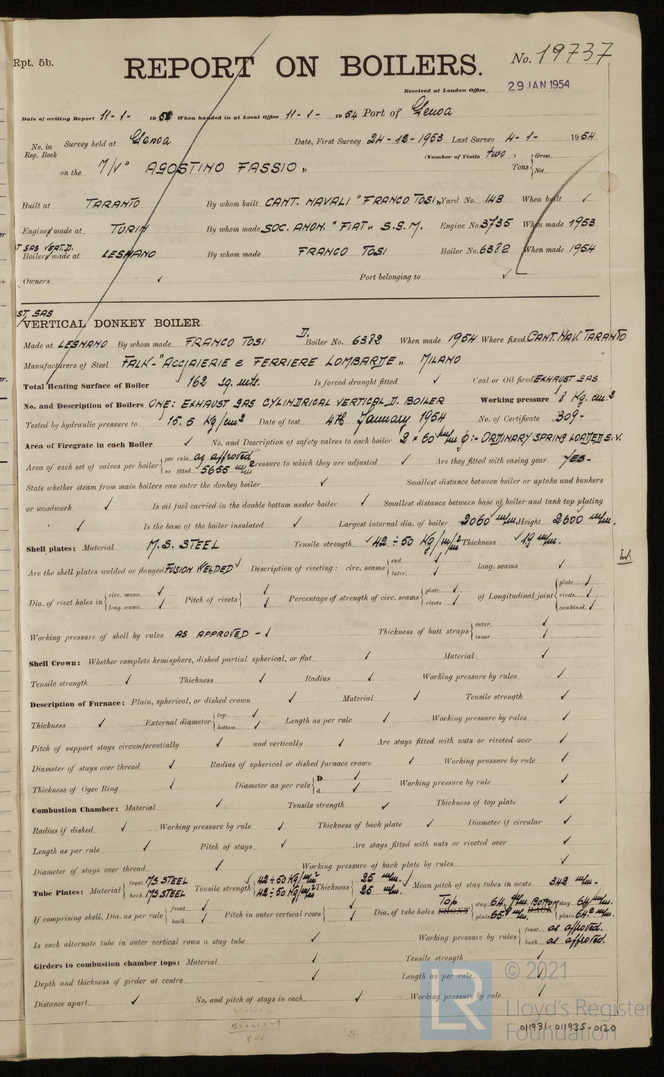 Rpt. 5b.
REPORT ON BOILERS.
No. 19737
Received at London Office
29 JAN 1954
Date of writing Report 11-1- 1954 When handed in at Local Office 11-1- 1954 Port of Genoa
No. in Reg. Book Survey held at Genoa Date, First Survey 24-12-1953 Last Survey 4-1- 1954
(Number of Visits two )
on the M/V "AGOSTINO FASSIO" Tons { Gross Net
Built at TARANTO By whom built CANT. NAVALI "FRANCO TOSI" Yard No. 143 When built ✓
Engines made at TURIN By whom made SOC. ANON. "FIAT" S.G.M. Engine No. 3735 When made 1953
Boilers made at LEGNANO By whom made FRANCO TOSI Boiler No. 6382 When made 1954
Owners ✓ Port belonging to ✓
VERTICAL DONKEY BOILER.
Made at LEGNANO By whom made FRANCO TOSI D. Boiler No. 6382 When made 1954 Where fixed CANT. NAV. TARANTO
Manufacturers of Steel FALK-"ACCIAIERIE e FERRIERE LOMBARDE" MILANO
Total Heating Surface of Boiler 162 sq. mts. Is forced draught fitted ✓ Coal or Oil fired EXHAUST GAS
No. and Description of Boilers ONE: EXHAUST GAS CYLINDRICAL VERTICAL D. BOILER Working pressure 8 Kg. cm.2
Tested by hydraulic pressure to 15.5 Kg/cm2 Date of test 4th January 1954 No. of Certificate 309-
Area of Firegrate in each Boiler ✓ No. and Description of safety valves to each boiler 2 × 60 m/m ϕ:- ORDINARY SPRING LOADED S.V.
Area of each set of valves per boiler { per rule as approved as fitted 5655 m/m2 Pressure to which they are adjusted ✓ Are they fitted with easing gear YES-
State whether steam from main boilers can enter the donkey boiler ✓ Smallest distance between boiler or uptake and bunkers
or woodwork ✓ Is oil fuel carried in the double bottom under boiler ✓ Smallest distance between base of boiler and tank top plating
✓ Is the base of the boiler insulated ✓ Largest internal dia. of boiler 2060 m/m. Height 2600 m/m.
Shell plates: Material M.S. STEEL Tensile strength 42 ÷ 50 Kg/m/m2 Thickness 19 m/m.
Are the shell plates welded or flanged FUSION WELDED Description of riveting: circ. seams { end ✓ inter. ✓ long. seams ✓
Dia. of rivet holes in { circ. seams ✓ long. seams ✓ Pitch of rivets { ✓ Percentage of strength of circ. seams { plate ✓ rivets ✓ of Longitudinal joint { plate ✓ rivets ✓ combined ✓
Working pressure of shell by rules AS APPROVED - ✓ Thickness of butt straps { outer ✓ inner ✓
Shell Crown: Whether complete hemisphere, dished partial spherical, or flat ✓ Material ✓
Tensile strength ✓ Thickness ✓ Radius ✓ Working pressure by rules ✓
Description of Furnace: Plain, spherical, or dished crown ✓ Material ✓ Tensile strength ✓
Thickness ✓ External diameter { top ✓ bottom ✓ Length as per rule ✓ Working pressure by rules ✓
Pitch of support stays circumferentially ✓ and vertically ✓ Are stays fitted with nuts or riveted over ✓
Diameter of stays over thread ✓ Radius of spherical or dished furnace crown ✓ Working pressure by rule ✓
Thickness of Ogee Ring ✓ Diameter as per rule { D ✓ d ✓ Working pressure by rule ✓
Combustion Chamber: Material ✓ Tensile strength ✓ Thickness of top plate ✓
Radius if dished ✓ Working pressure by rule ✓ Thickness of back plate ✓ Diameter if circular ✓
Length as per rule ✓ Pitch of stays ✓ Are stays fitted with nuts or riveted over ✓
Diameter of stays over thread ✓ Working pressure of back plate by rules ✓
Tube Plates: Material { front MS STEEL back MS STEEL Tensile strength { 42 ÷ 50 Kg/m/m2 42 ÷ 50 Kg/m/m2 Thickness { 25 m/m. 25 m/m. Mean pitch of stay tubes in nests 342 m/m-
If comprising shell, Dia. as per rule { front ✓ back ✓ Pitch in outer vertical rows { ✓ Dia. of tube holes Top FRONT { stay plain Bottom BACK { stay plain
Is each alternate tube in outer vertical rows a stay tube ✓ Working pressure by rules { front as approved. back as approved.
Girders to combustion chamber tops: Material ✓ Tensile strength ✓
Depth and thickness of girder at centre ✓ Length as per rule ✓
Distance apart ✓ No. and pitch of stays in each ✓ Working pressure by rule ✓
LR © 2021
Lloyd's Register
Foundation
011931-011935-0120